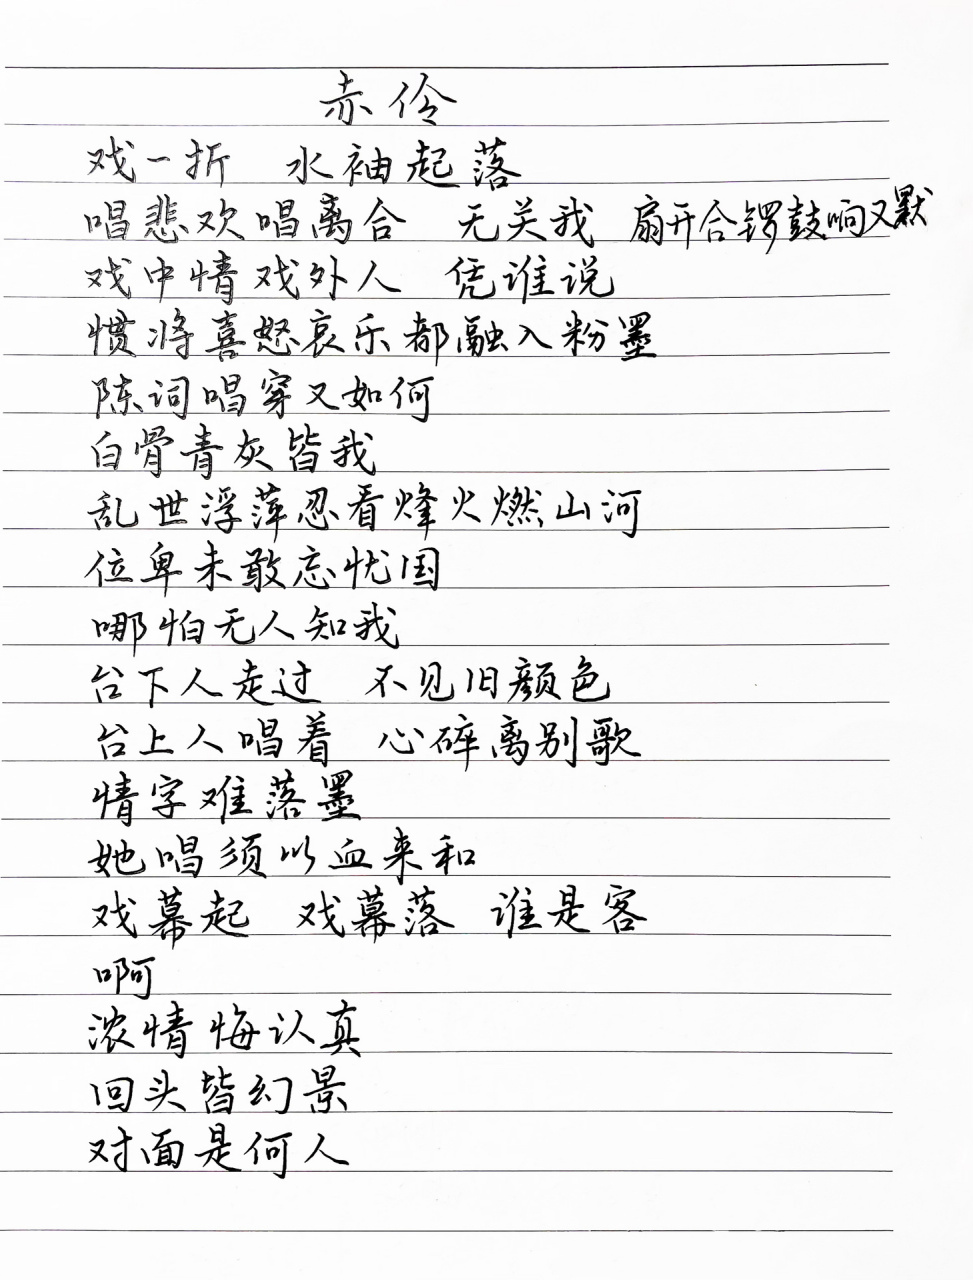 赤伶
戏一折 水袖起落
唱悲欢唱离合 无关我 扇开合锣鼓响又默
戏中情戏外人 凭谁说
惯将喜怒哀乐都融入粉墨
陈词唱穿又如何
白骨青灰皆我
乱世浮萍忍看烽火燃山河
位卑未敢忘忧国
哪怕无人知我
台下人走过 不见旧颜色
台上人唱着 心碎离别歌
情字难落墨
她唱须以血来和
戏幕起 戏幕落 谁是客
啊
浓情悔认真
回头皆幻景
对面是何人